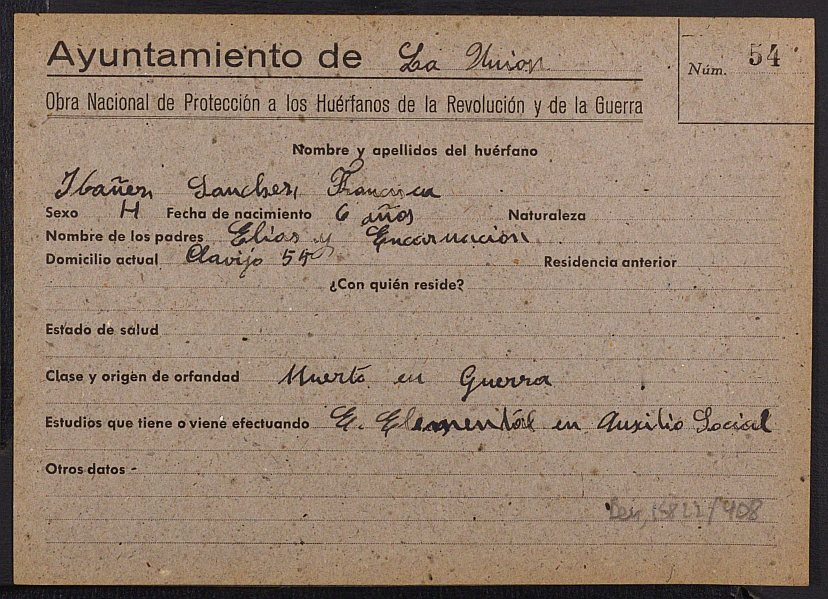 Ayuntamiento de La Union
Núm. 54
Obra Nacional de Protección a los Huérfanos de la Revolución y de la Guerra
Nombre y apellidos del huérfano
Ibañez Sanchez Francisca
Sexo H Fecha de nacimiento 6 años Naturaleza
Nombre de los padres Elias y Encarnación
Domicilio actual Clavijo 54 Residencia anterior
¿Con quién reside?
Estado de salud
Clase y origen de orfandad Muerto en Guerra
Estudios que tiene o viene efectuando E. Elemental en Auxilio Social
Otros datos -
15822/408